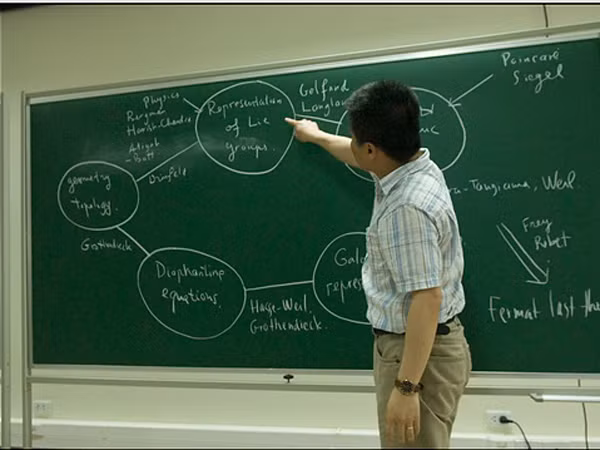 Physics
Bargman
Harish-Chandra
Atiyah
- Bott
Representation
of Lie
groups.
Gelfand
Langlan
Poincaré
Siegel
geometry
topology.
Drinfeld
Grothendieck
Diophantine
equations.
Hasse-Weil.
Grothendieck.
Galo
repres
ra-Taniyama, Weil
Frey
Ribet
Fermat last the